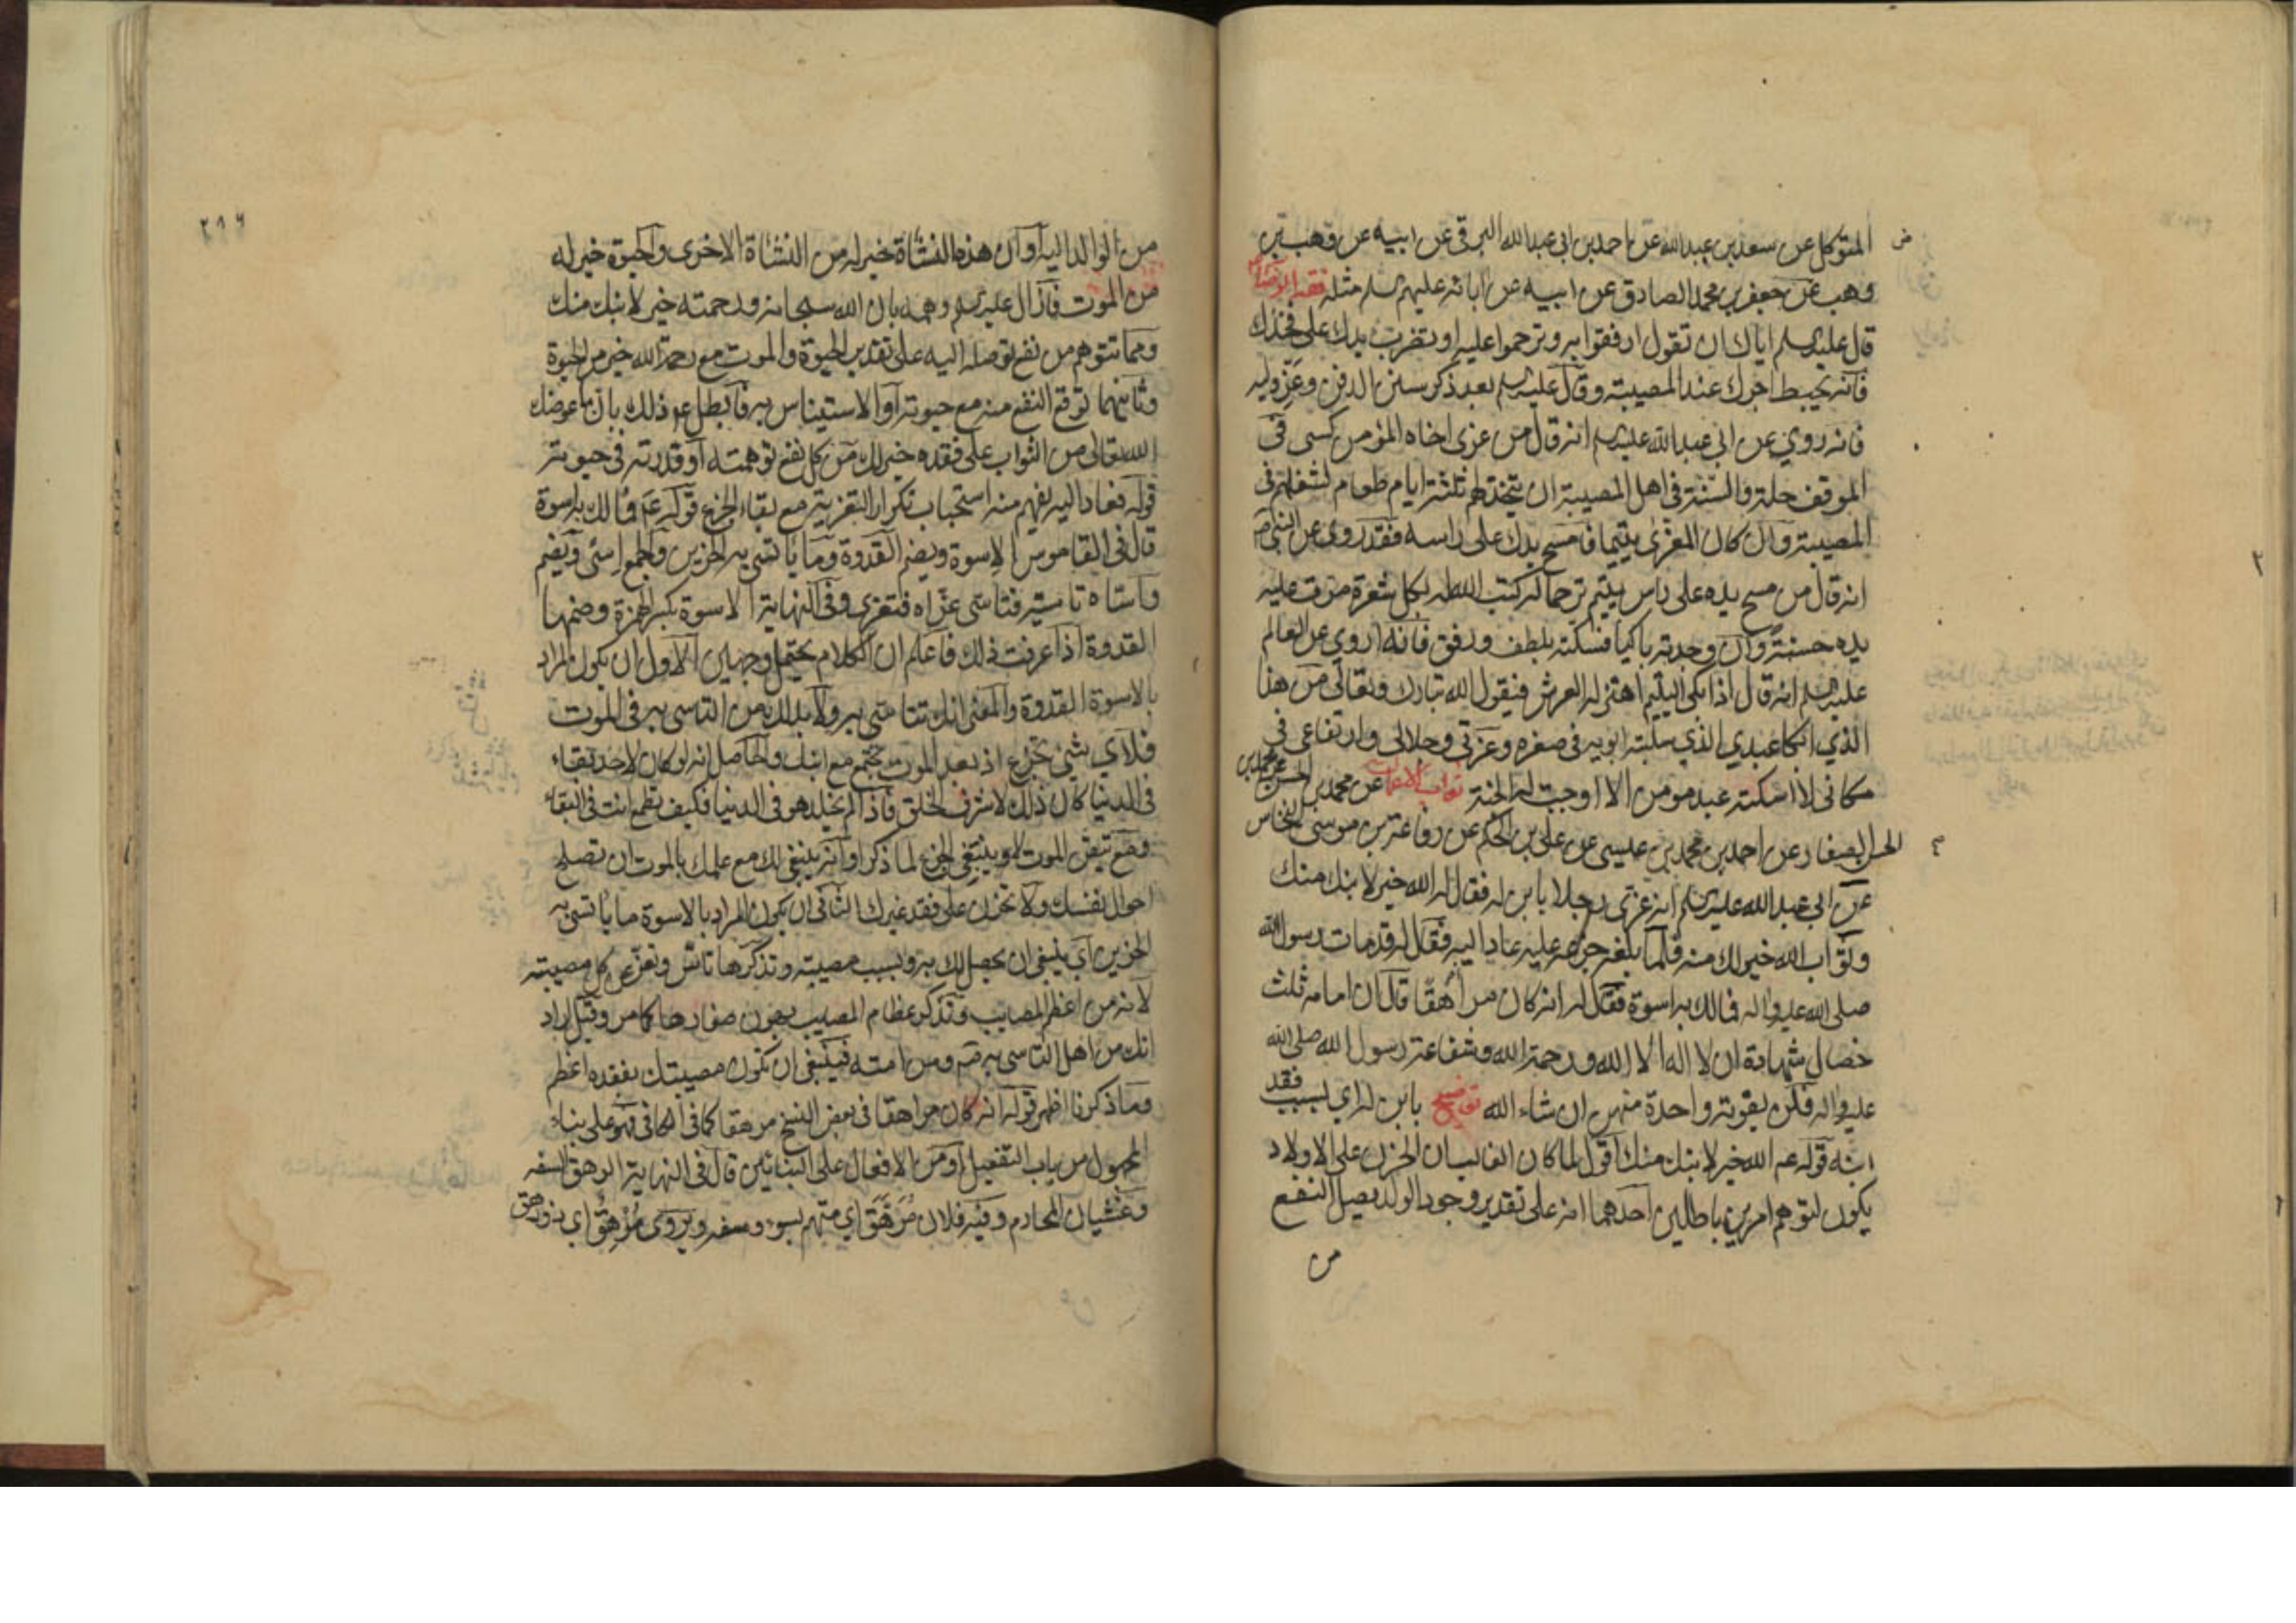 المتوكل عن سعد بن عبد الله عن احمد بن ابي عبد الله البرقي عن ابيه عن وهب بن
وهب عن جعفر بن محمد الصادق عن ابيه عن ابائه عليهم السلم مثله فقه الرضا
قال عليه السلم اياك ان تقول ارفقوا به وترحموا عليه او تضرب يدك على فخذك
فانه يحبط اجرك عند المصيبة وقال عليه السلم بعد ذكر سنن الدفن وعز وليه
فانه روي عن ابي عبد الله عليه السلم انه قال من عزى اخاه المؤمن كسى في
الموقف حلة والسنة في اهل المصيبة ان يتخذ لهم ثلثة ايام طعام لشغلهم في
المصيبة وان كان المعزى يتيما فامسح يدك على راسه فقد روى عن النبي ص
انه قال من مسح يده على راس يتيم ترحما له كتب الله له بكل شعرة مرت عليه
يده حسنة وان وجدته باكيا فسكته بلطف ورفق فانه اروي عن العالم
عليه السلم انه قال اذا بكى اليتيم اهتز له العرش فيقول الله تبارك وتعالى من هذا
الذي ابكا عبدي الذي سلبته ابويه في صغره وعزتي وجلالي وارتفاعي في
مكاني لا اسكته عبد مومن الا اوجبت له الجنة ثواب الاعمال عن محمد بن الحسن عن محمد بن
الحسن الصفار عن احمد بن محمد بن عيسى عن علي بن الحكم عن رفاعة بن موسى النخاس
عن ابي عبد الله عليه السلم انه عزى رجلا بابن له فقال له الله خير لابنك منك
وثواب الله خير لك منه فلما بلغه جزعه عليه عاد اليه فقال له قد مات رسول الله
صلى الله عليه واله فما لك به اسوة فقال له انه كان مراهقا قال ان امامه ثلث
خصال شهادة ان لا اله الا الله ورحمة الله وشفاعة رسول الله صلى الله
عليه واله فلن يفوته واحدة منهن ان شاء الله توضيح بابن له اي بسبب فقد
ابنه قوله عم الله خير لابنك منك اقول لما كان الغالب ان الحزن على الاولاد
يكون لتوهم امرين باطلين احدهما انه على تقدير وجود الولد يصل النفع
من
٢١٦
من الوالد اليه او ان هذه النشاة خير له من النشاة الاخرى والحيوة خير له
من الموت فازال عليه السلم وهمه بان الله سبحانه ورحمته خير لابنك منك
ومما تتوهم من نفع توصله اليه على تقدير الحيوة والموت مع رحمة الله خير من الحيوة
وثانيهما توقع النفع منه مع حيوته او الاستيناس به فابطل عم ذلك بان ما عوضك
الله تعالى من الثواب على فقده خير لك من كل نفع توهمته او قدرته في حيوته
قوله فعاد اليه يفهم منه استحباب تكرار التعزية مع بقاء الجزع قوله عم فما لك به اسوة
قال في القاموس الاسوة ويضم القدوة وما ياتسي به الحزين والجمع اسى ويضم
واساه تاسية فتاسى عزاه فتعزى وفي النهاية الاسوة بكسر الهمزة وضمها
القدوة اذا عرفت ذلك فاعلم ان الكلام يحتمل وجهين الاول ان يكون المراد
بالاسوة القدوة والمعنى انك تتاسى به ولا بد لك من التاسي به في الموت
فلاي شيء تجزع اذ بعد الموت تجتمع مع ابنك والحاصل انه لو كان لاحد بقاء
في الدنيا كان ذلك لاشرف الخلق فاذا لم يخلد هو في الدنيا فكيف تطمع انت في البقاء
ومع تيقن الموت لا ينبغي الجزع لما ذكر او انه ينبغي لك مع علمك بالموت ان تصلح
احوال نفسك ولا تحزن على فقد غيرك الثاني ان يكون المراد بالاسوة ما ياتسى به
الحزين اي ينبغي ان يحصل لك به وبسبب مصيبته وتذكرها تاس وتعز عن كل مصيبة
لانه من اعظم المصايب وتذكر عظام المصايب يهون صغارها كما مر وقيل اراد
انك من اهل التاسي به ص ومن امته فينبغي ان تكون مصيبتك بفقده اعظم
وما ذكرنا اظهر قوله انه كان مراهقا في بعض النسخ مرهقا كما في الكافي فهو على بناء
المجهول من باب التفعيل او من الافعال على البنائين قال في النهاية الرهق السفه
وغشيان المحارم وفيه فلان مرهق اي متهم بسوء وسفه ويروى مرهق اي ذو رهق